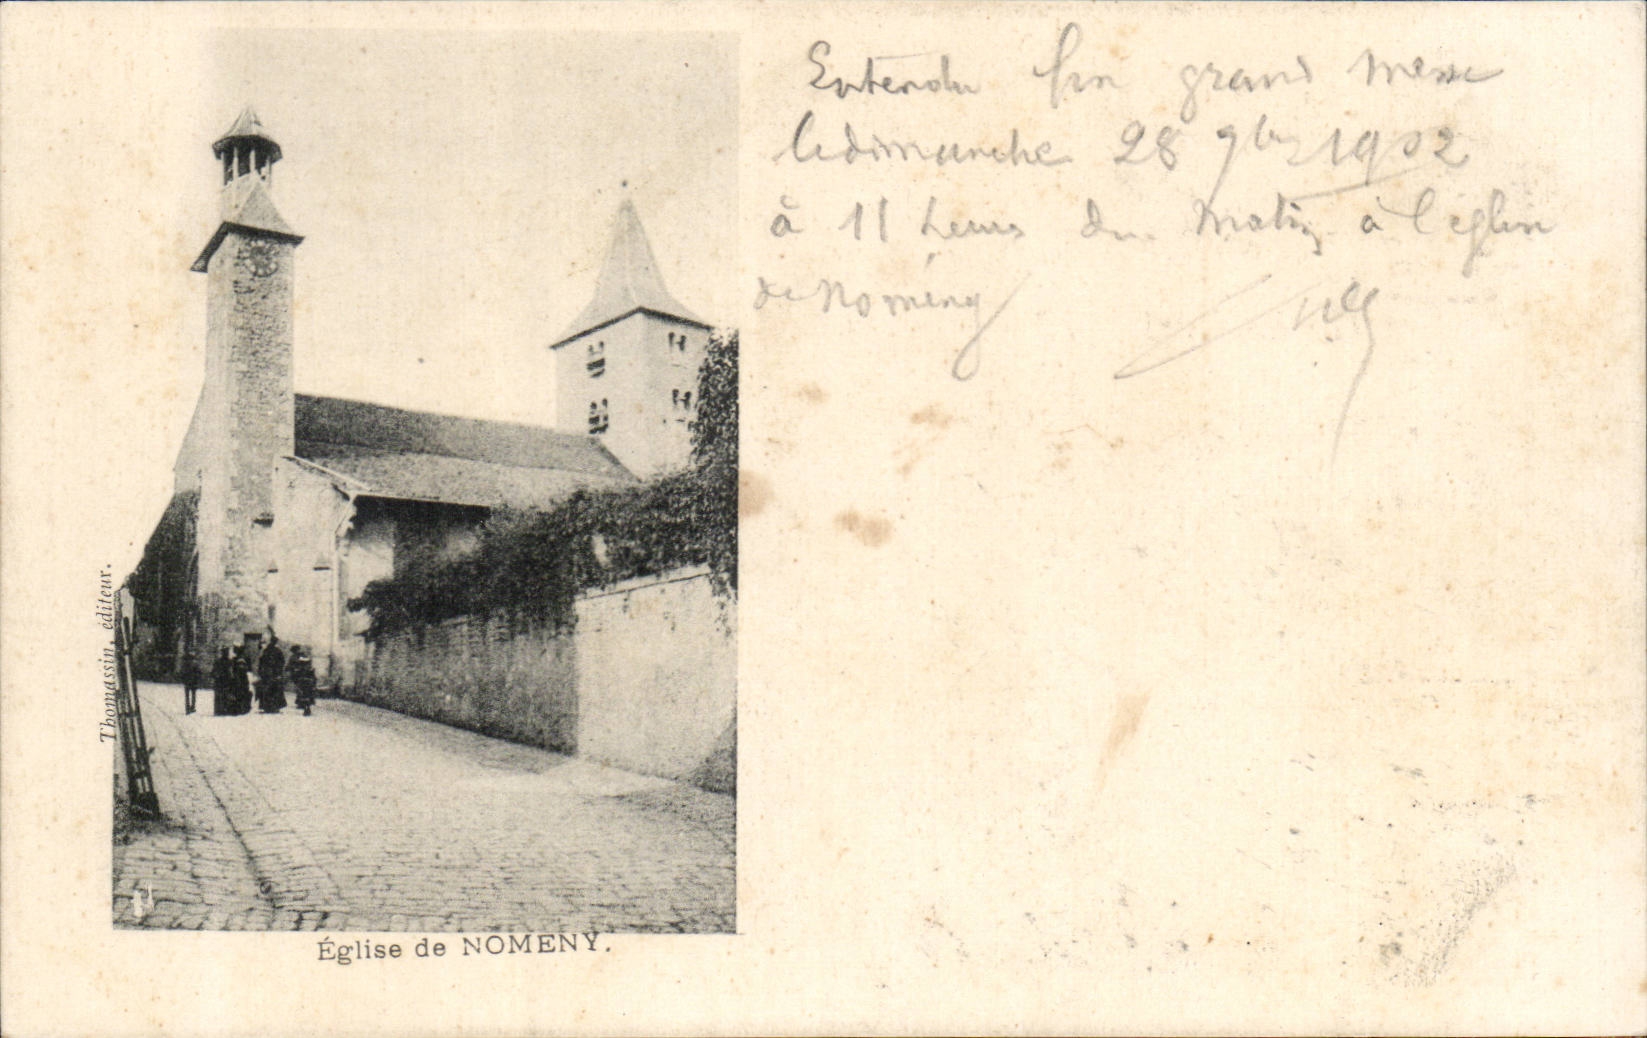 Entendu fin grand messe
le dimanche 28 9bre 1902
à 11 heures du matin à l'église
de Nomény
Thomassin, éditeur.
Église de NOMENY.